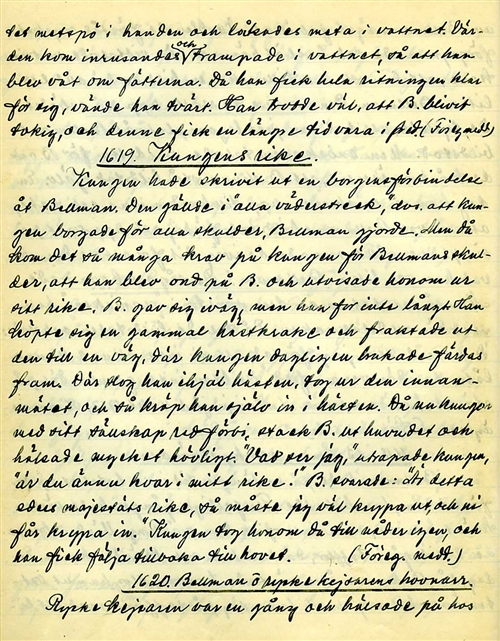 det metspö i handen och låtsades meta i vattnet. Vär-
den kom inrusandes och trampade i vattnet, så att han
blev våt om fötterna. Då han fick hela ritningen klar
för sig, vände han tvärt. Han trodde väl, att B. blivit
tokig, och denne fick en längre tid vara i fred. (Föreg. medd.)
1619. Kungens rike.
Kungen hade skrivit ut en borgensförbindelse
åt Bellman. Den gällde i "alla väderstreck", dvs. att kun-
gen borgade för alla skulder, Bellman gjorde. Men då
kom det så många krav på kungen för Bellmans skul-
der, att han blev ond på B. och utvisade honom ur
sitt rike. B. gav sig iväg, men han for inte långt. Han
köpte sig en gammal hästkrake och fraktade ut
den till en väg, där kungen dagligen brukade färdas
fram. Där slog han ihjäl hästen, tog ur den innan-
mätet, och så kröp han själv in i hästen. Då nu kungen
med sitt sällskap red förbi, stack B. ut huvudet och
hälsade mycket hövligt. "Vad ser jag," utropade kungen,
"är du ännu kvar i mitt rike." B. svarade: "Är detta
eders majestäts rike, så måste jag väl krypa ut, och ni
får krypa in." Kungen tog honom då till nåder igen, och
han fick följa tillbaka till hovet. (Föreg. medd.)
1620. Bellman o ryske kejsarens hovnarr.
Ryske kejsaren var en gång och hälsade på hos